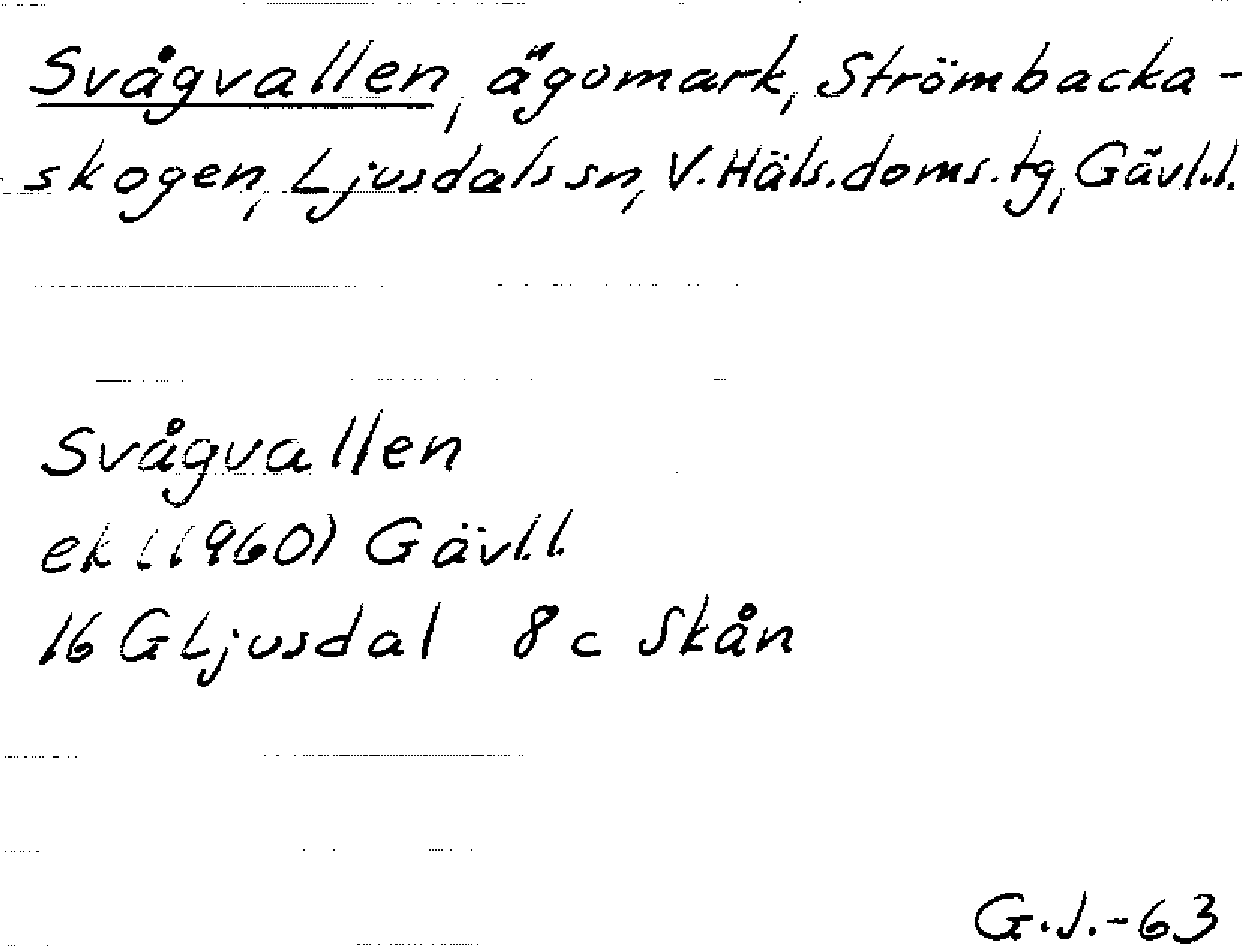 Svågvallen, ägomark, Strömbacka-
skogen, Ljusdals sn, V. Häls. doms. tg, Gävl.l.
Svågvallen
ek (1960) Gävl.l.
16 G Ljusdal 8 c Skån
G.J.-63